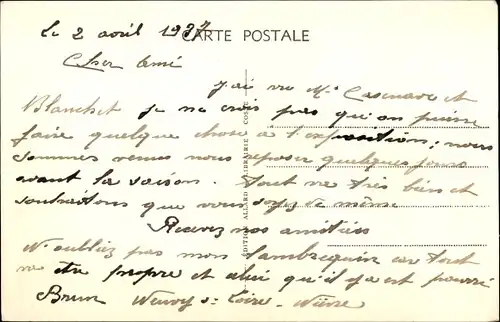 le 2 avril 1937
CARTE POSTALE
Cher Ami
J'ai vu Mr Casenave et
Blanchet je ne crois pas qu'on puisse
faire quelque chose à l'exposition, nous
sommes venus nous reposer quelques jours
avant la saison. Tout va très bien et
souhaitons que vous soyez de même
Recevez nos amitiés
N'oubliez pas mon Lambrequin car tout
propre et celui qu'il y a est pourri
Brun Neuvy s- Loire - Nièvre
EDITION ALLARD LIBRAIRIE